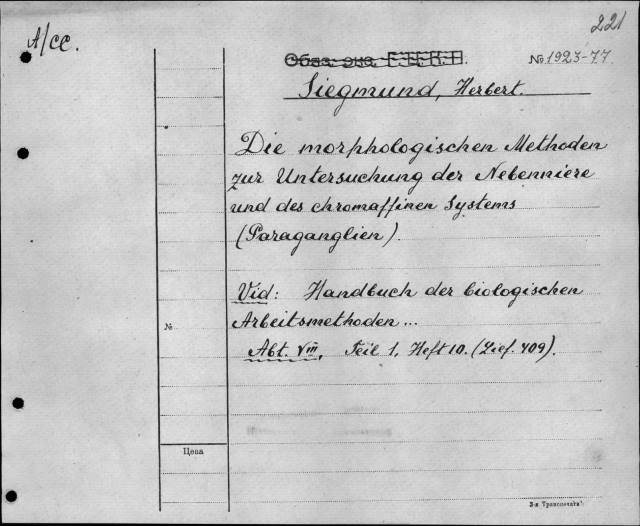 221
A/cc.
Обяз. экз. Г.Ц.К.П.
№ 1923-77
Siegmund, Herbert.
Die morphologischen Methoden
zur Untersuchung der Nebenniere
und des chromaffinen Systems
(Paraganglien).
Vid: Handbuch der biologischen
Arbeitsmethoden...
№
Abt. VIII, Teil 1, Heft 10. (Lief. 409).
Цена
3-я Транспечать